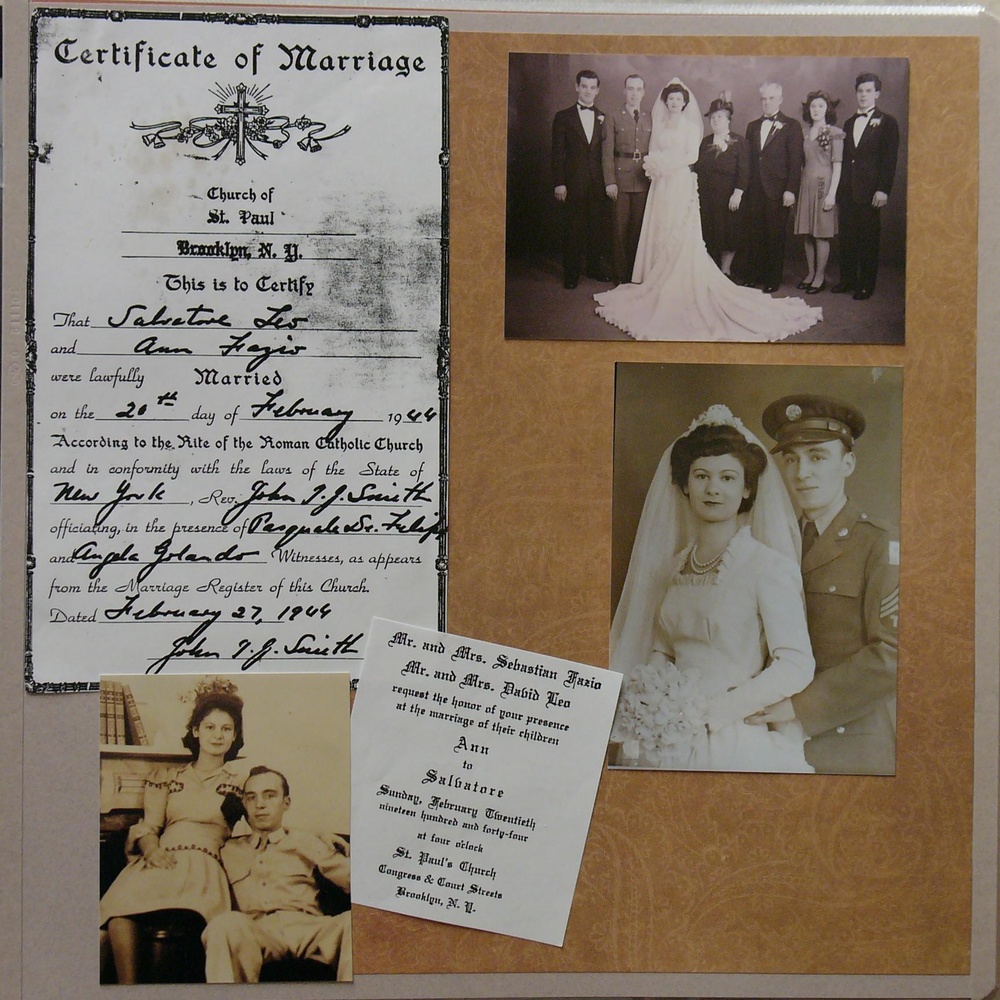 Certificate of Marriage
Church of
St. Paul
Brooklyn, N. Y.
This is to Certify
That Salvatore Leo
and Ann Fazio
were lawfully Married
on the 20th day of February 1944
According to the Rite of the Roman Catholic Church
and in conformity with the laws of the State of
New York, Rev. John J. J. Smith
officiating, in the presence of Pasquale De. Filip
and Angela Golando Witnesses, as appears
from the Marriage Register of this Church.
Dated February 27, 1944
John J. J. Smith
Mr. and Mrs. Sebastian Fazio
Mr. and Mrs. David Leo
request the honor of your presence
at the marriage of their children
Ann
to
Salvatore
Sunday, February Twentieth
nineteen hundred and forty-four
at four o'clock
St. Paul's Church
Congress & Court Streets
Brooklyn, N. Y.